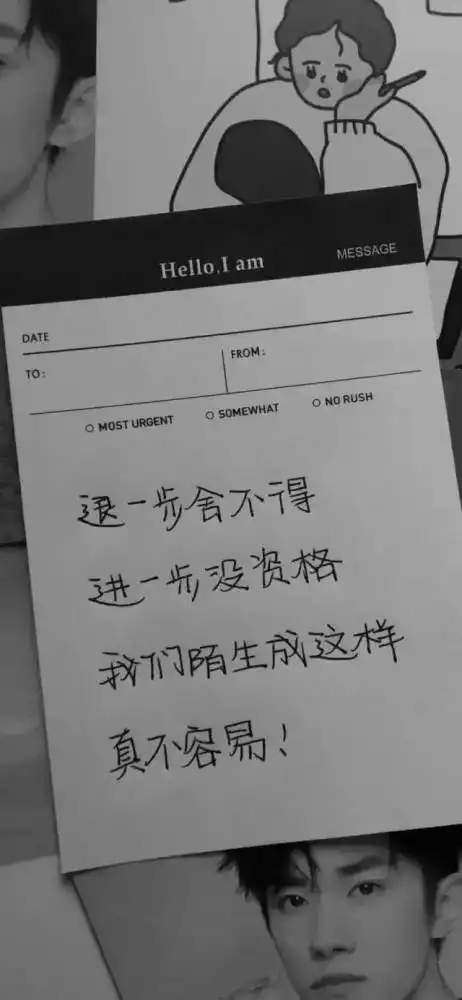 Hello,I am
MESSAGE
DATE
TO:
FROM:
MOST URGENT
SOMEWHAT
NO RUSH
退一步舍不得
进一步没资格
我们陌生成这样
真不容易!